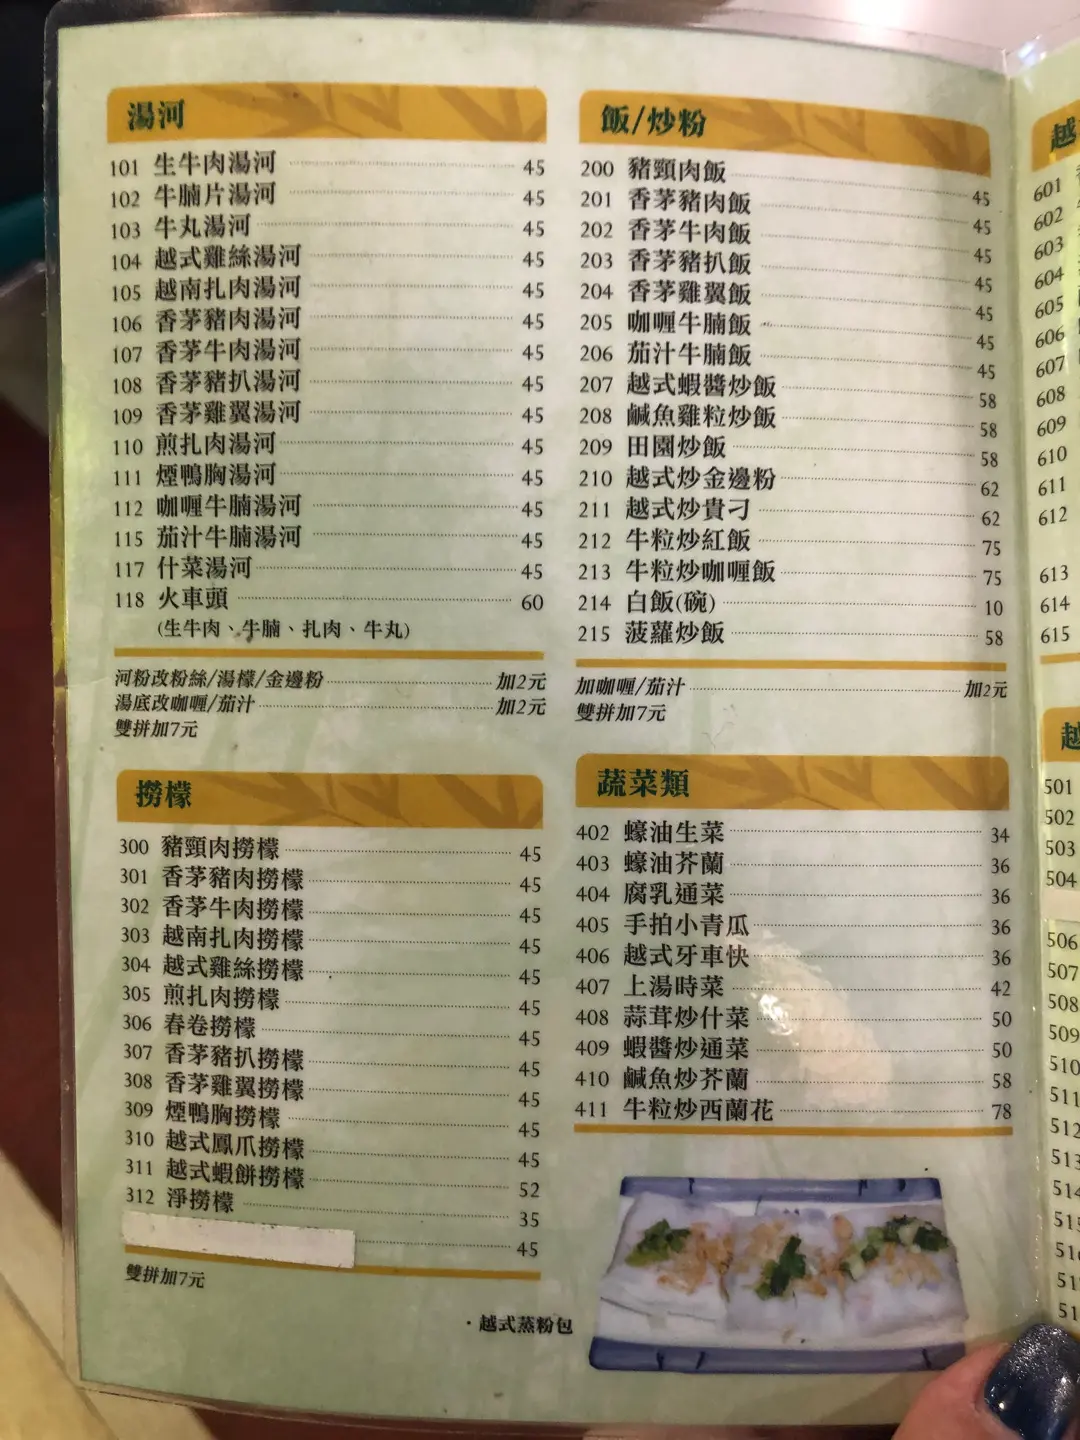 湯河
101 生牛肉湯河 45
102 牛腩片湯河 45
103 牛丸湯河 45
104 越式雞絲湯河 45
105 越南扎肉湯河 45
106 香茅豬肉湯河 45
107 香茅牛肉湯河 45
108 香茅豬扒湯河 45
109 香茅雞翼湯河 45
110 煎扎肉湯河 45
111 煙鴨胸湯河 45
112 咖喱牛腩湯河 45
115 茄汁牛腩湯河 45
117 什菜湯河 45
118 火車頭 60
(生牛肉、牛腩、扎肉、牛丸)
河粉改粉絲/湯檬/金邊粉 加2元
湯底改咖喱/茄汁 加2元
雙拼加7元
撈檬
300 豬頸肉撈檬 45
301 香茅豬肉撈檬 45
302 香茅牛肉撈檬 45
303 越南扎肉撈檬 45
304 越式雞絲撈檬 45
305 煎扎肉撈檬 45
306 春卷撈檬 45
307 香茅豬扒撈檬 45
308 香茅雞翼撈檬 45
309 煙鴨胸撈檬 45
310 越式鳳爪撈檬 45
311 越式蝦餅撈檬 52
312 淨撈檬 35
45
雙拼加7元
飯/炒粉
200 豬頸肉飯 45
201 香茅豬肉飯 45
202 香茅牛肉飯 45
203 香茅豬扒飯 45
204 香茅雞翼飯 45
205 咖喱牛腩飯 45
206 茄汁牛腩飯 45
207 越式蝦醬炒飯 58
208 鹹魚雞粒炒飯 58
209 田園炒飯 58
210 越式炒金邊粉 62
211 越式炒貴刁 62
212 牛粒炒紅飯 75
213 牛粒炒咖喱飯 75
214 白飯(碗) 10
215 菠蘿炒飯 58
加咖喱/茄汁 加2元
雙拼加7元
蔬菜類
402 蠔油生菜 34
403 蠔油芥蘭 36
404 腐乳通菜 36
405 手拍小青瓜 36
406 越式牙車快 36
407 上湯時菜 42
408 蒜茸炒什菜 50
409 蝦醬炒通菜 50
410 鹹魚炒芥蘭 58
411 牛粒炒西蘭花 78
·越式蒸粉包
越
601
602
603
604
605
606
607
608
609
610
611
612
613
614
615
越
501
502
503
504
506
507
508
509
510
511
512
513